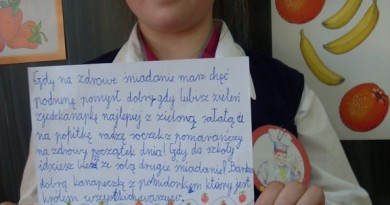 Gdy na zdrowe śniadanie masz chęć
podsunę pomysł dobry gdy lubisz zieleń
zjedz kanapkę najlepiej z zieloną sałatą a
na popitkę radzę soczek z pomarańczy
na zdrowy początek dnia! Gdy do szkoły
idziesz weź ze sobą drugie śniadanie! Bardzo
dobrą kanapeczkę z pomidorkiem który jest
królem wszystkich warzyw.